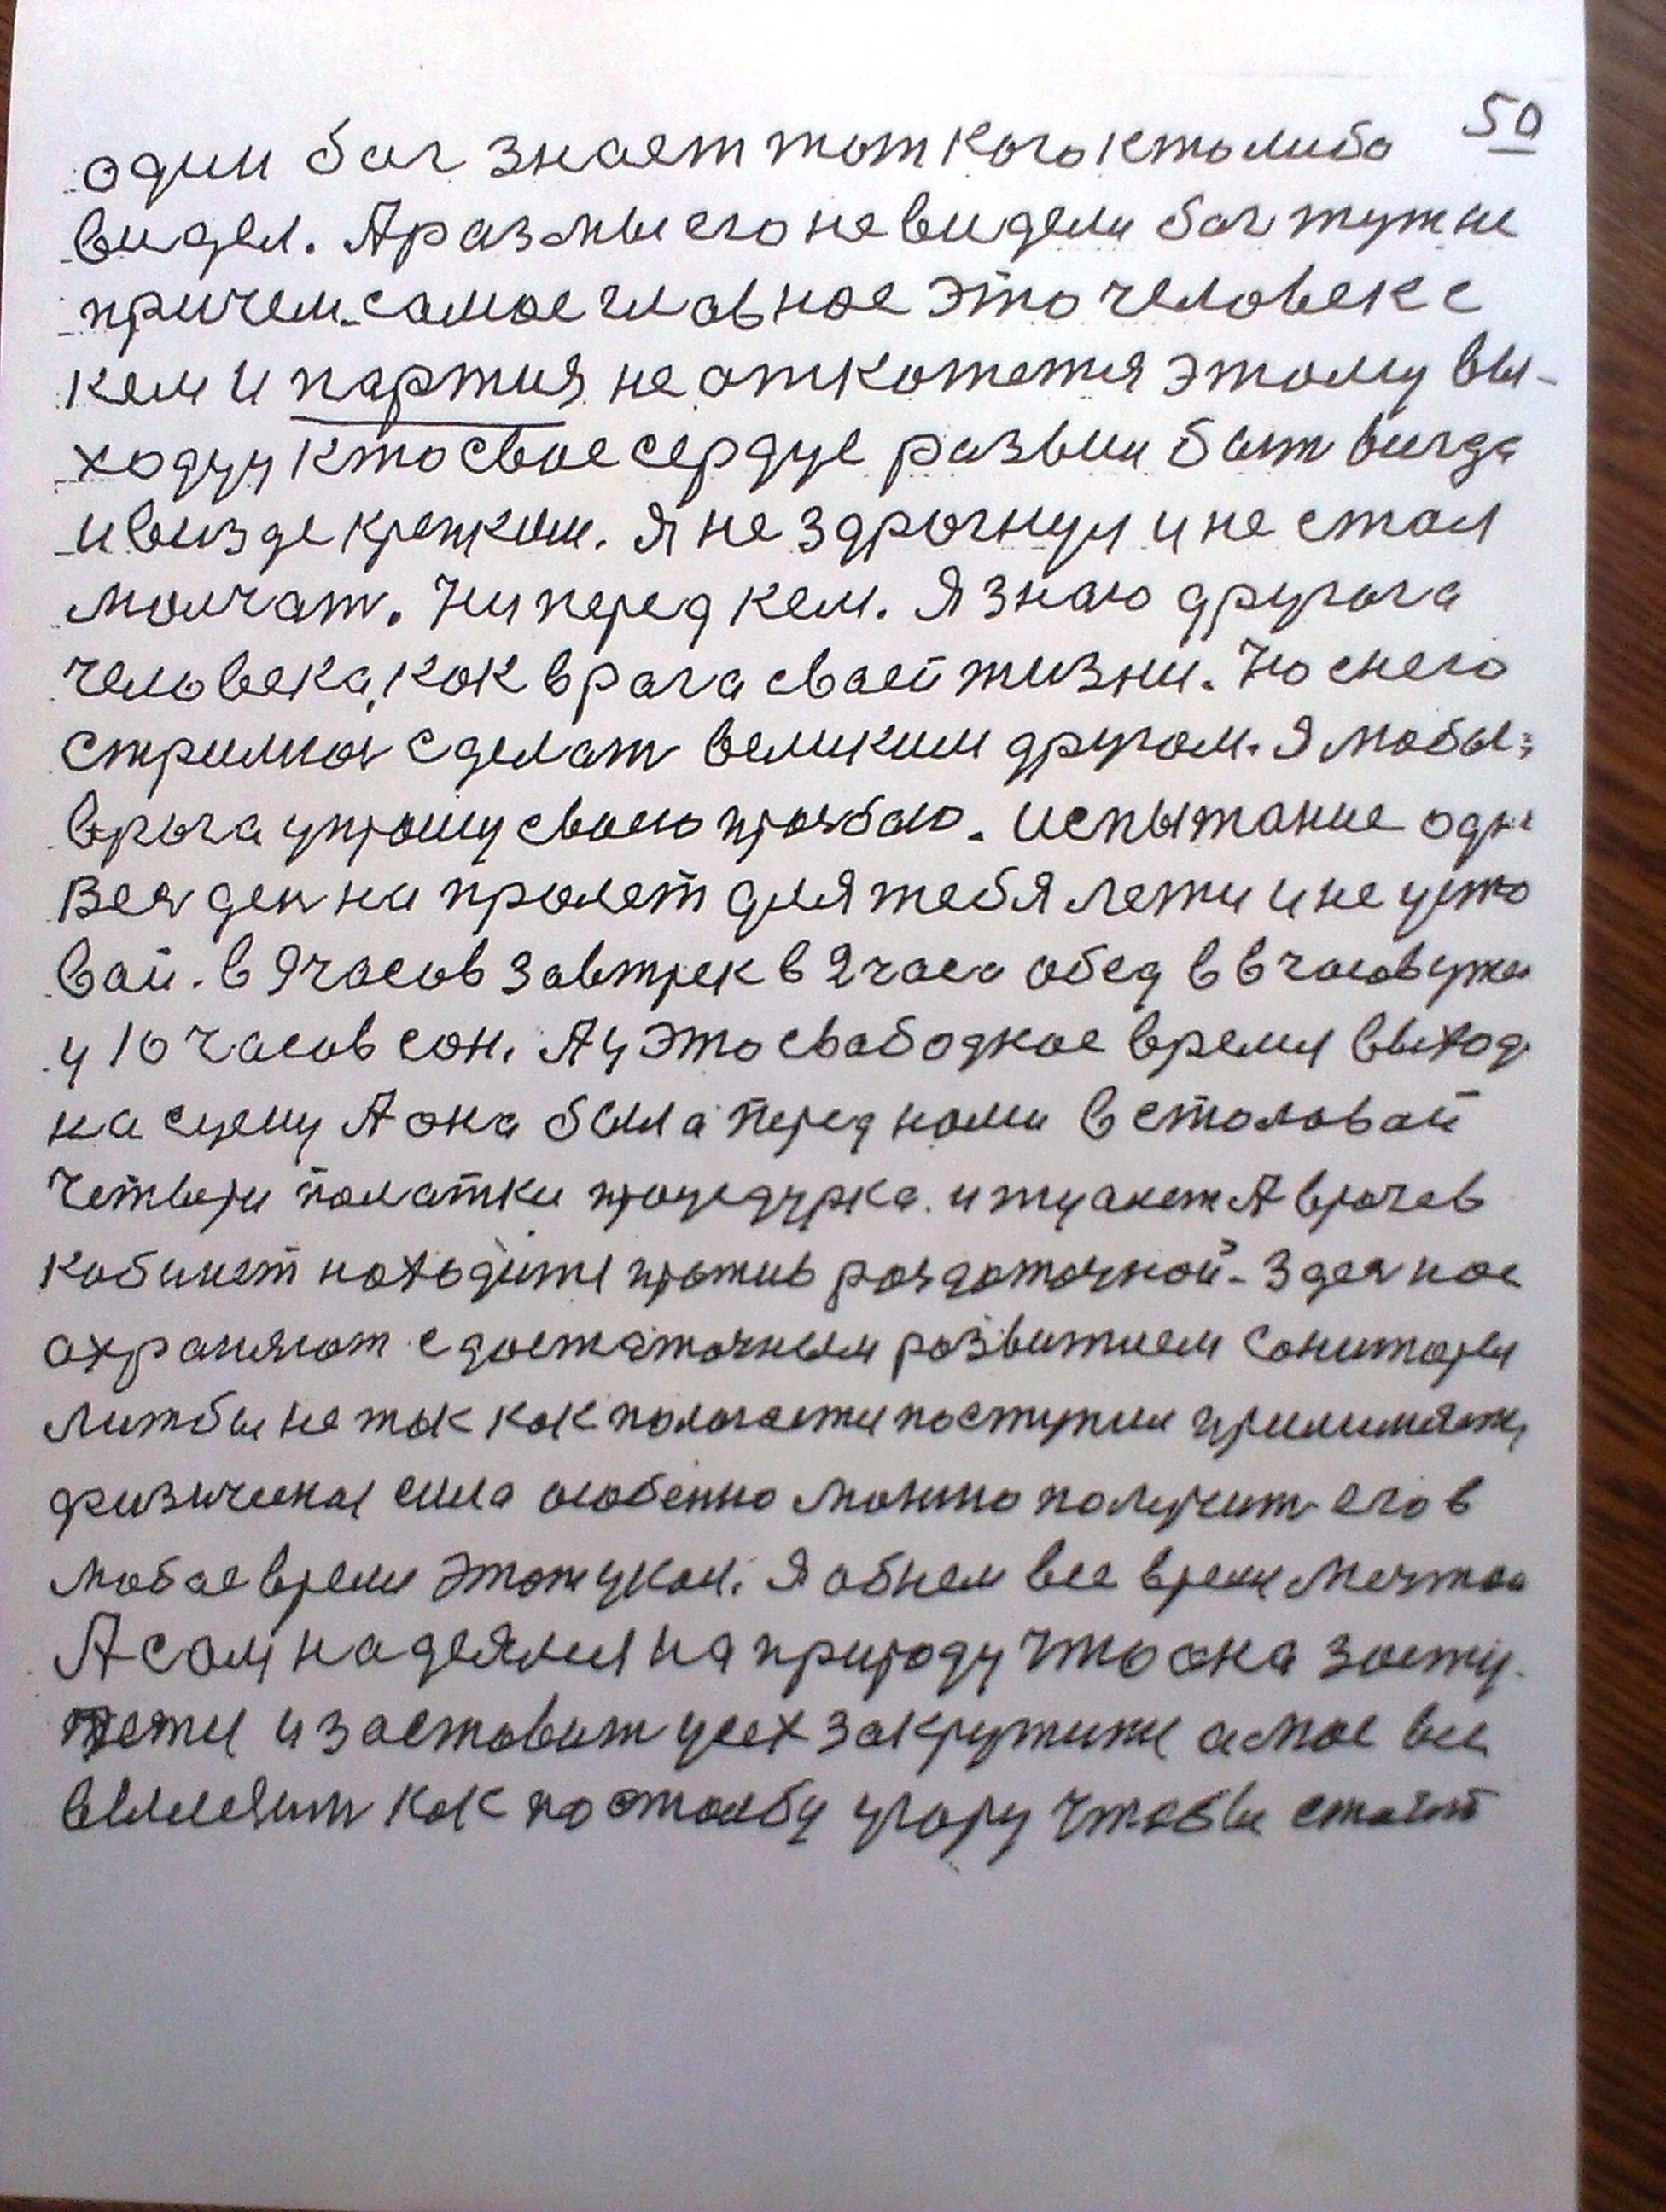 50
один бог знает тот кого кто либо
видел. А раз мы его не видели бог тут не
причем. самое главное это человек с
кем и партия не откотется этому вы-
ходуу кто свое сердце развил быт
и визде крепким. Я не здрогнул и не стал
молчат. Ни перед кем. Я знаю другога
человека, как врага своей жизни. Но с него
стримлюсь сделат великим другом. Я любы:
врага упрошу своею прозбою. испытание одно
Весь ден на пролет для тебя лежи и не уста
вай. в 9 часов завтрек в 2 часа обед в 6 часов ужин
у 10 часов сон. А у это свабодное время выход
на сцену А она была перед нами в столовай
Четвери полатки процедурка. и туалет А врачев
кобинет находитя против роздаточной. Здесь нас
охраняют с достаточным развитием санитары
Литбы не так как пологается поступил прилиняетя
физическая сила особенно можно получит его в
любое время этот укол. Я обнем все время мечтал
А сам надеялся на природу что она засту-
петя и заставит усех закрутитя а мое
как по столбу угору чтобы